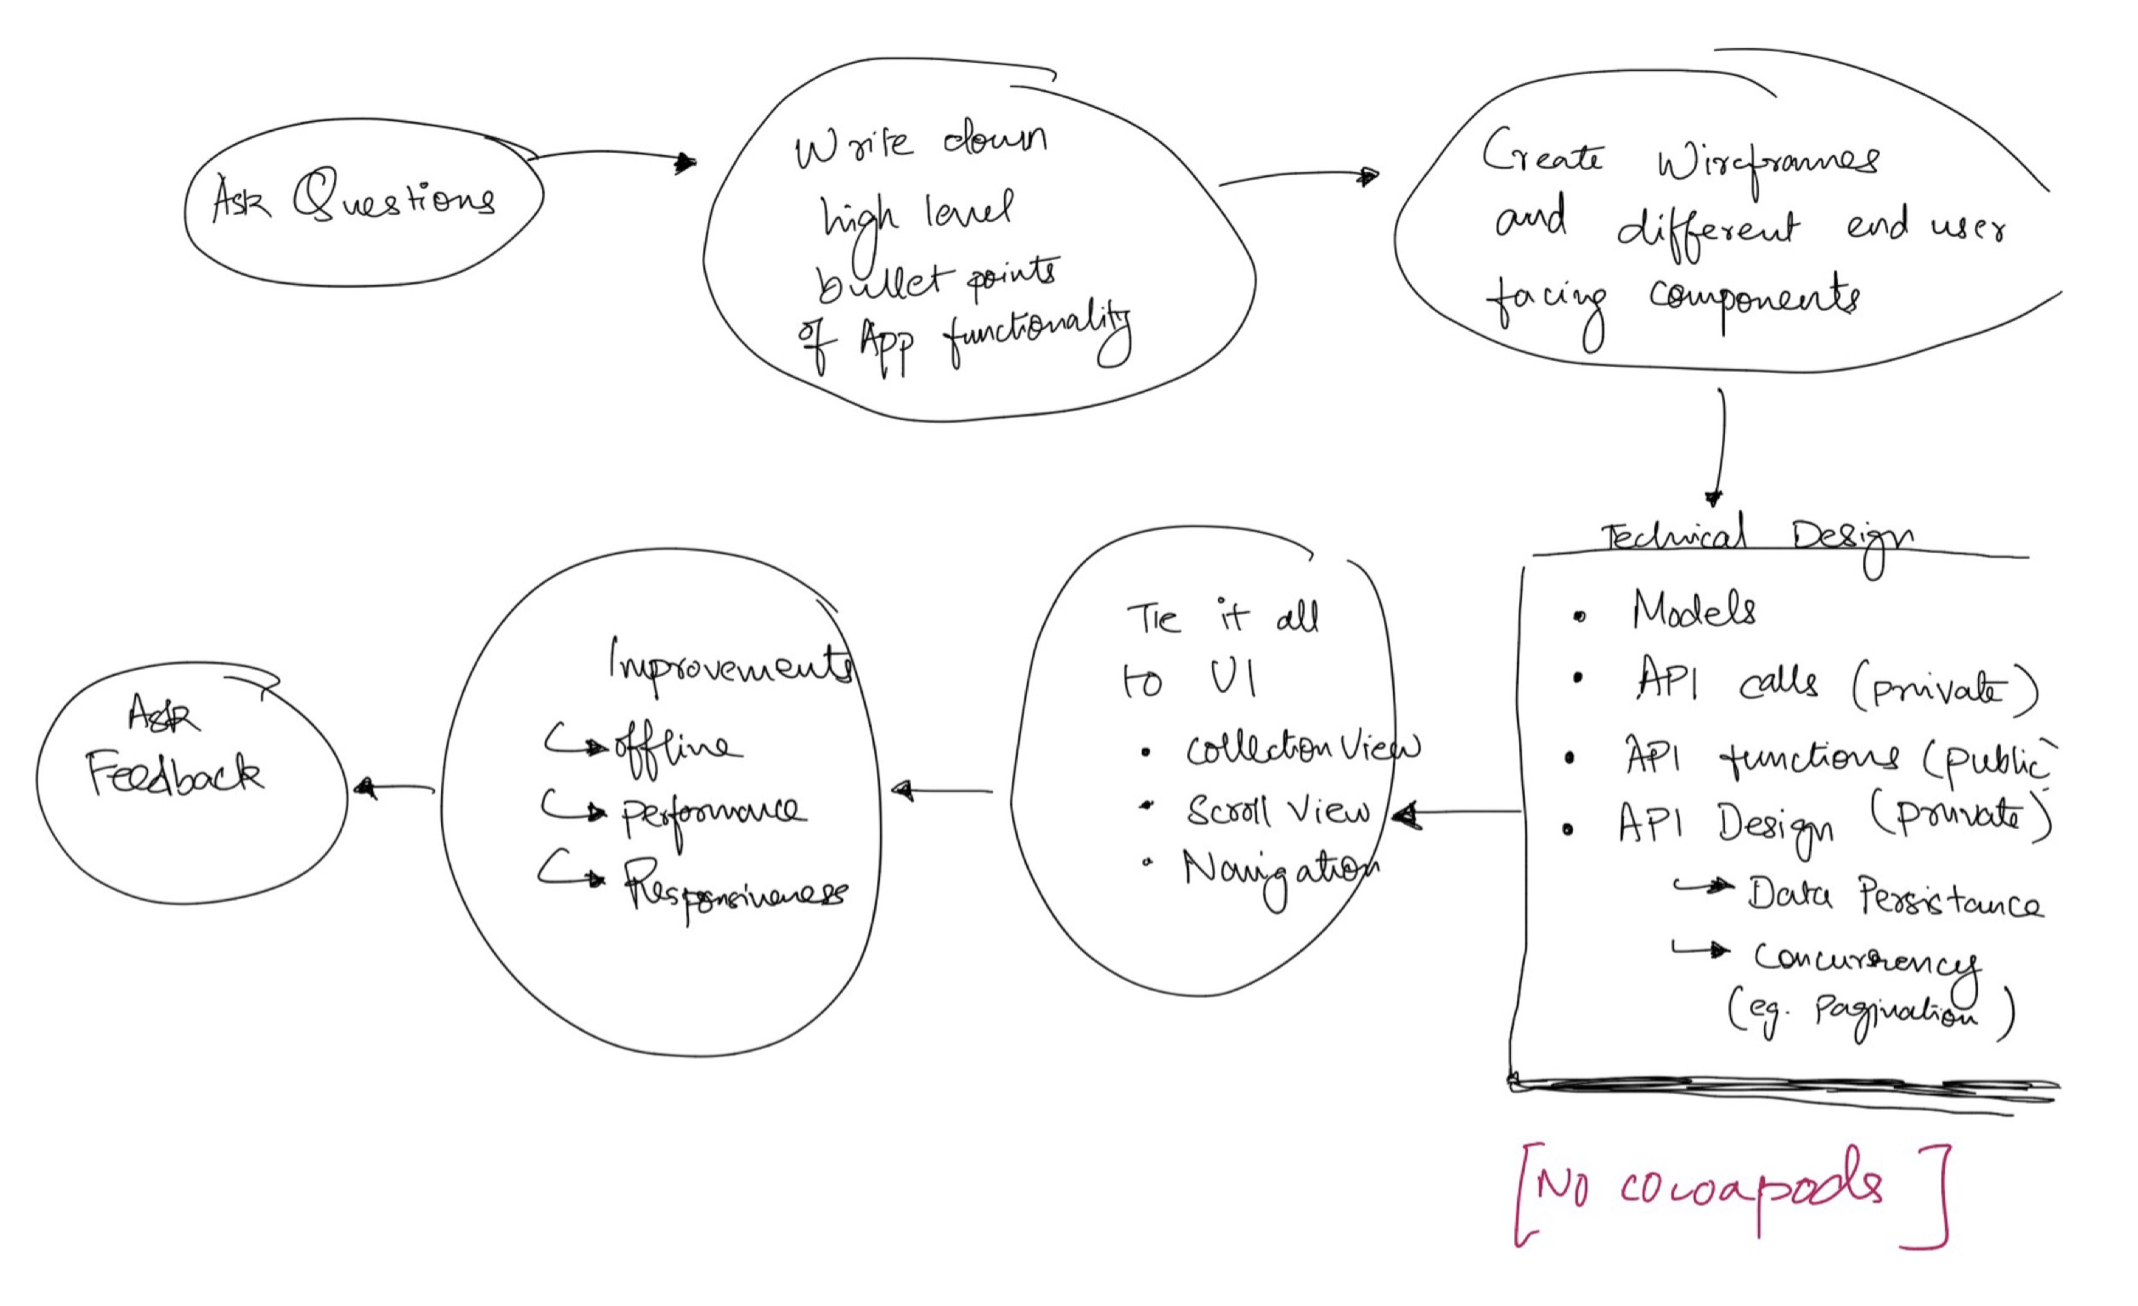 Ask Questions
Write down
high level
bullet points
of App functionality
Create Wireframes
and different end user
facing components
Technical Design
• Models
• API calls (private)
• API functions (public)
• API Design (private)
Data Persistance
Concurrency
(eg. Pagination)
[No cocoapods]
Tie it all
to UI
• Collection View
• Scroll View
• Navigation
Improvements
offline
performance
Responsiveness
Ask
Feedback